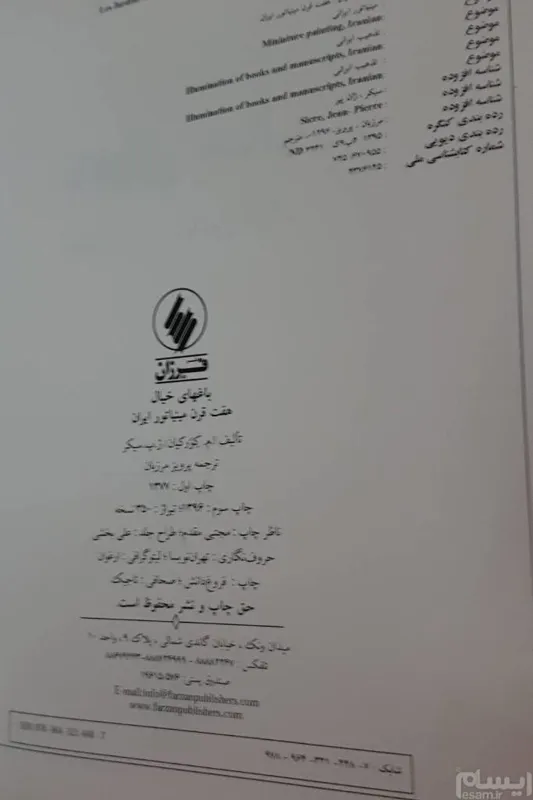 هفت قرن مینیاتور ایران
موضوع : مینیاتور ایرانی
موضوع Miniature painting, Iranian
موضوع : تذهیب ایرانی
موضوع Illumination of books and manuscripts, Iranian
: تذهیب ایرانی
Illumination of books and manuscripts, Iranian
شناسه افزوده : سیکر، ژان پیر
شناسه افزوده Sicre, Jean- Pierre
شناسه افزوده : مرزبان، پرویز، ۱۲۹۶-، مترجم
رده بندی کنگره : ۱۳۹۵
رده بندی دیویی : ۷۴۵/
شماره کتابشناسی ملی :
فرزان
باغهای خیال
هفت قرن مینیاتور ایران
تألیف ا.م. کِوُرکیان / ژ.پ. سیکر
ترجمه پرویز مرزبان
چاپ اول: ۱۳۷۷
چاپ سوم: ۱۳۹۶؛ تیراژ: ۳۵۰ نسخه
ناظر چاپ: مجتبی مقدم؛ طراح جلد: علی بخشی
حروف‌نگاری: تهران‌نویسا؛ لیتوگرافی: ارغوان
چاپ: فروغ‌دانش؛ صحافی: تاجیک
حق چاپ و نشر محفوظ است.
میدان ونک، خیابان گاندی شمالی، پلاک ۹، واحد ۱۰
تلفکس:
صندوق پستی: ۱۹۶۱۵/۵۷۶
E-mail:info@farzanpublishers.com
www.farzanpublishers.com
شابک: ۷-۴۴۸-۳۲۱-۹۶۴-۹۷۸
ایسام
esam.ir